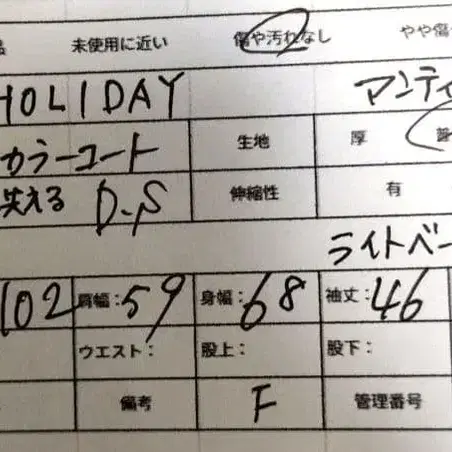 未使用に近い 傷や汚れなし やや傷
HOLIDAY マンティ
カラーコート 生地 厚
洗える D-S 伸縮性 有
ライトベー
102 肩幅:59 身幅:68 袖丈:46
ウエスト: 股上: 股下:
備考 F 管理番号